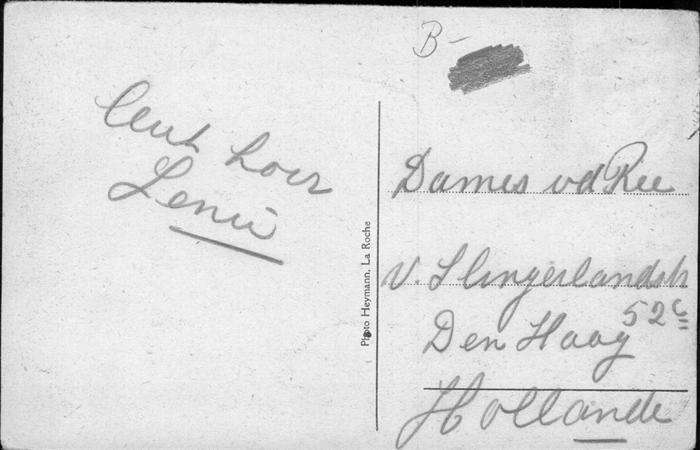 B-
Leuk hoor
Leni
Photo Heymann, La Roche
Dames vd Ree
v. Slingerlandstr
52c
Den Haag
Hollande